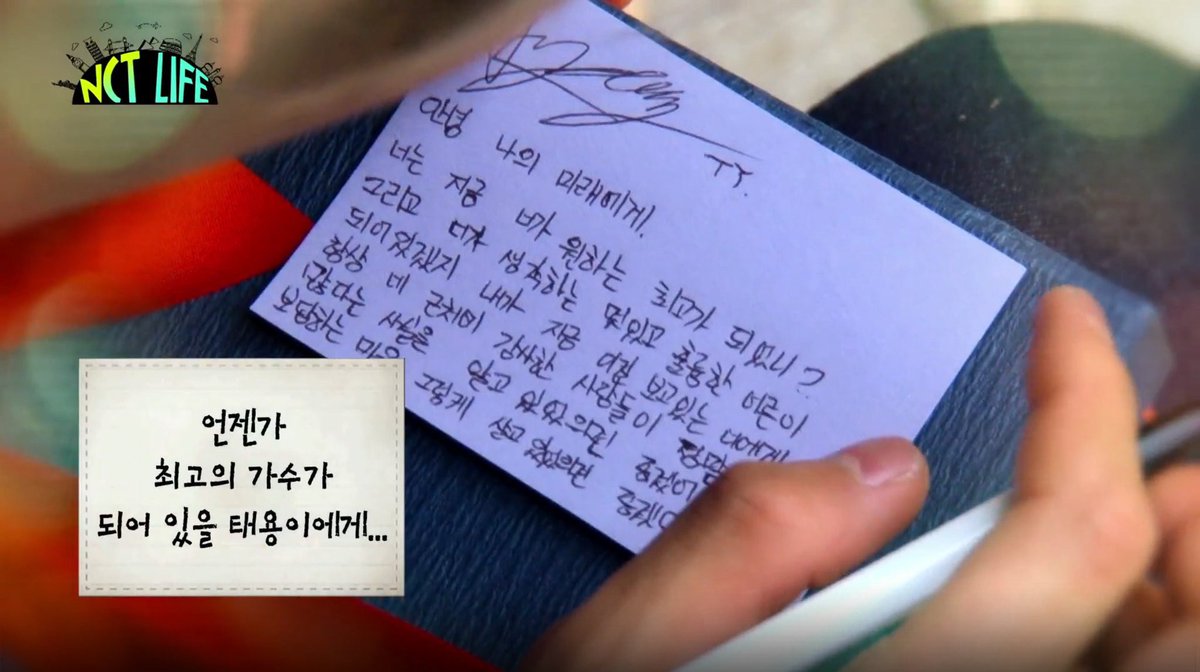 NCT LIFE
TY.
안녕 나의 미래에게.
너는 지금 너가 원하는 최고가 되었니?
그리고 너가 생각하는 멋있고 훌륭한 어른이
되어있겠지 내가 지금 이걸 보고있는 너에게
항상 네 근처에 감사한 사람들이
많다는 사실을 알고 있었으면 좋겠어
보답하는 그렇게 살고 있었으면
언젠가
최고의 가수가
되어 있을 태용이에게...